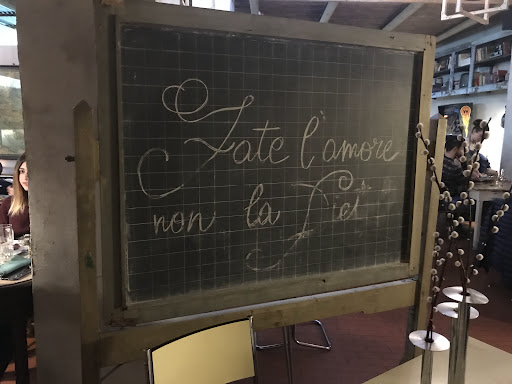 Fate l'amore
non la